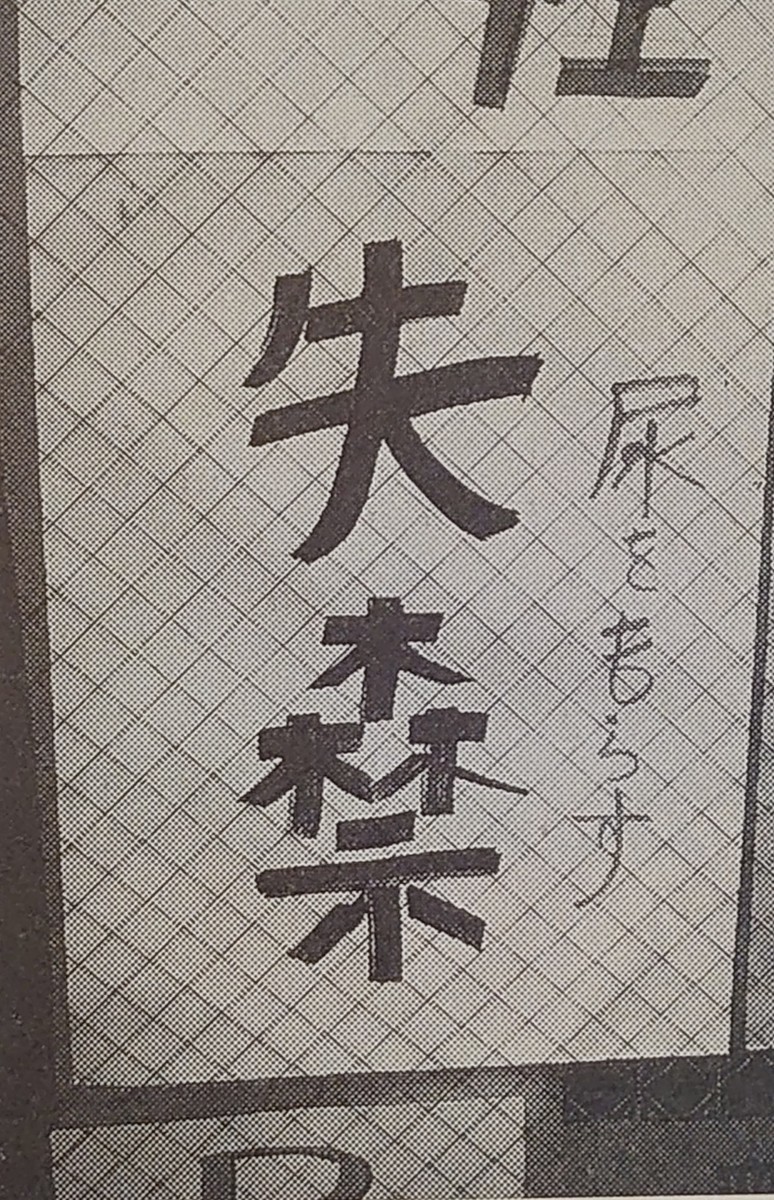 失禁
尿をもらす